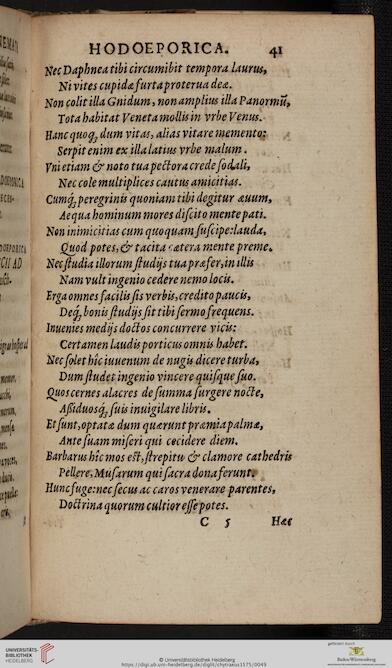 HODOEPORICA. 41
Nec Daphnea tibi circumibit tempora laurus,
Ni vites cupidæ furta proterua deæ.
Non colit illa Gnidum, non amplius illa Panormũ,
Tota habitat Veneta mollis in vrbe Venus.
Hanc quoq; dum vitas, alias vitare memento:
Serpit enim ex illa latius vrbe malum.
Vni etiam & noto tua pectora crede sodali,
Nec cole multiplices cautus amicitias.
Cumq; peregrinis quoniam tibi degitur æuum,
Aequa hominum mores discito mente pati.
Non inimicitias cum quoquam suscipe: lauda,
Quod potes, & tacita cætera mente preme.
Nec studia illorum studijs tua præfer, in illis
Nam vult ingenio cedere nemo locis.
Erga omnes facilis sis verbis, credito paucis,
Deq; bonis studijs sit tibi sermo frequens.
Inuenies medijs doctos concurrere vicis:
Certamen laudis porticus omnis habet.
Nec solet hic iuuenum de nugis dicere turba,
Dum studet ingenio vincere quisque suo.
Quos cernes alacres de summa surgere nocte,
Aßiduosq; suis inuigilare libris.
Et sunt, optatæ dum quærunt præmia palmæ,
Ante suam miseri qui cecidere diem.
Barbarus hic mos est, strepitu & clamore cathedris
Pellere, Musarum qui sacra dona ferunt.
Hunc fuge: nec secus ac caros venerare parentes,
Doctrina quorum cultior esse potes.
C 5 Hæc
UNIVERSITÄTS-
BIBLIOTHEK
HEIDELBERG
https://digi.ub.uni-heidelberg.de/diglit/chytraeus1575/0049
© Universitätsbibliothek Heidelberg
gefördert durch
Baden-Württemberg